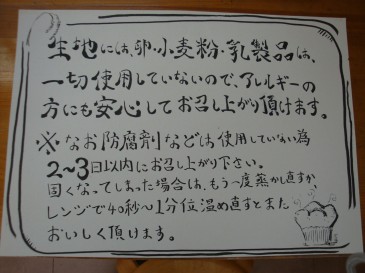 生地には、卵・小麦粉・乳製品は、
一切使用していないので、アレルギーの
方にも安心してお召し上がり頂けます。
※なお防腐剤などは使用していない為
2〜3日以内にお召し上がり下さい。
固くなってしまった場合は、もう一度蒸かし直すか
レンジで40秒〜1分位温め直すとまた
おいしく頂けます。